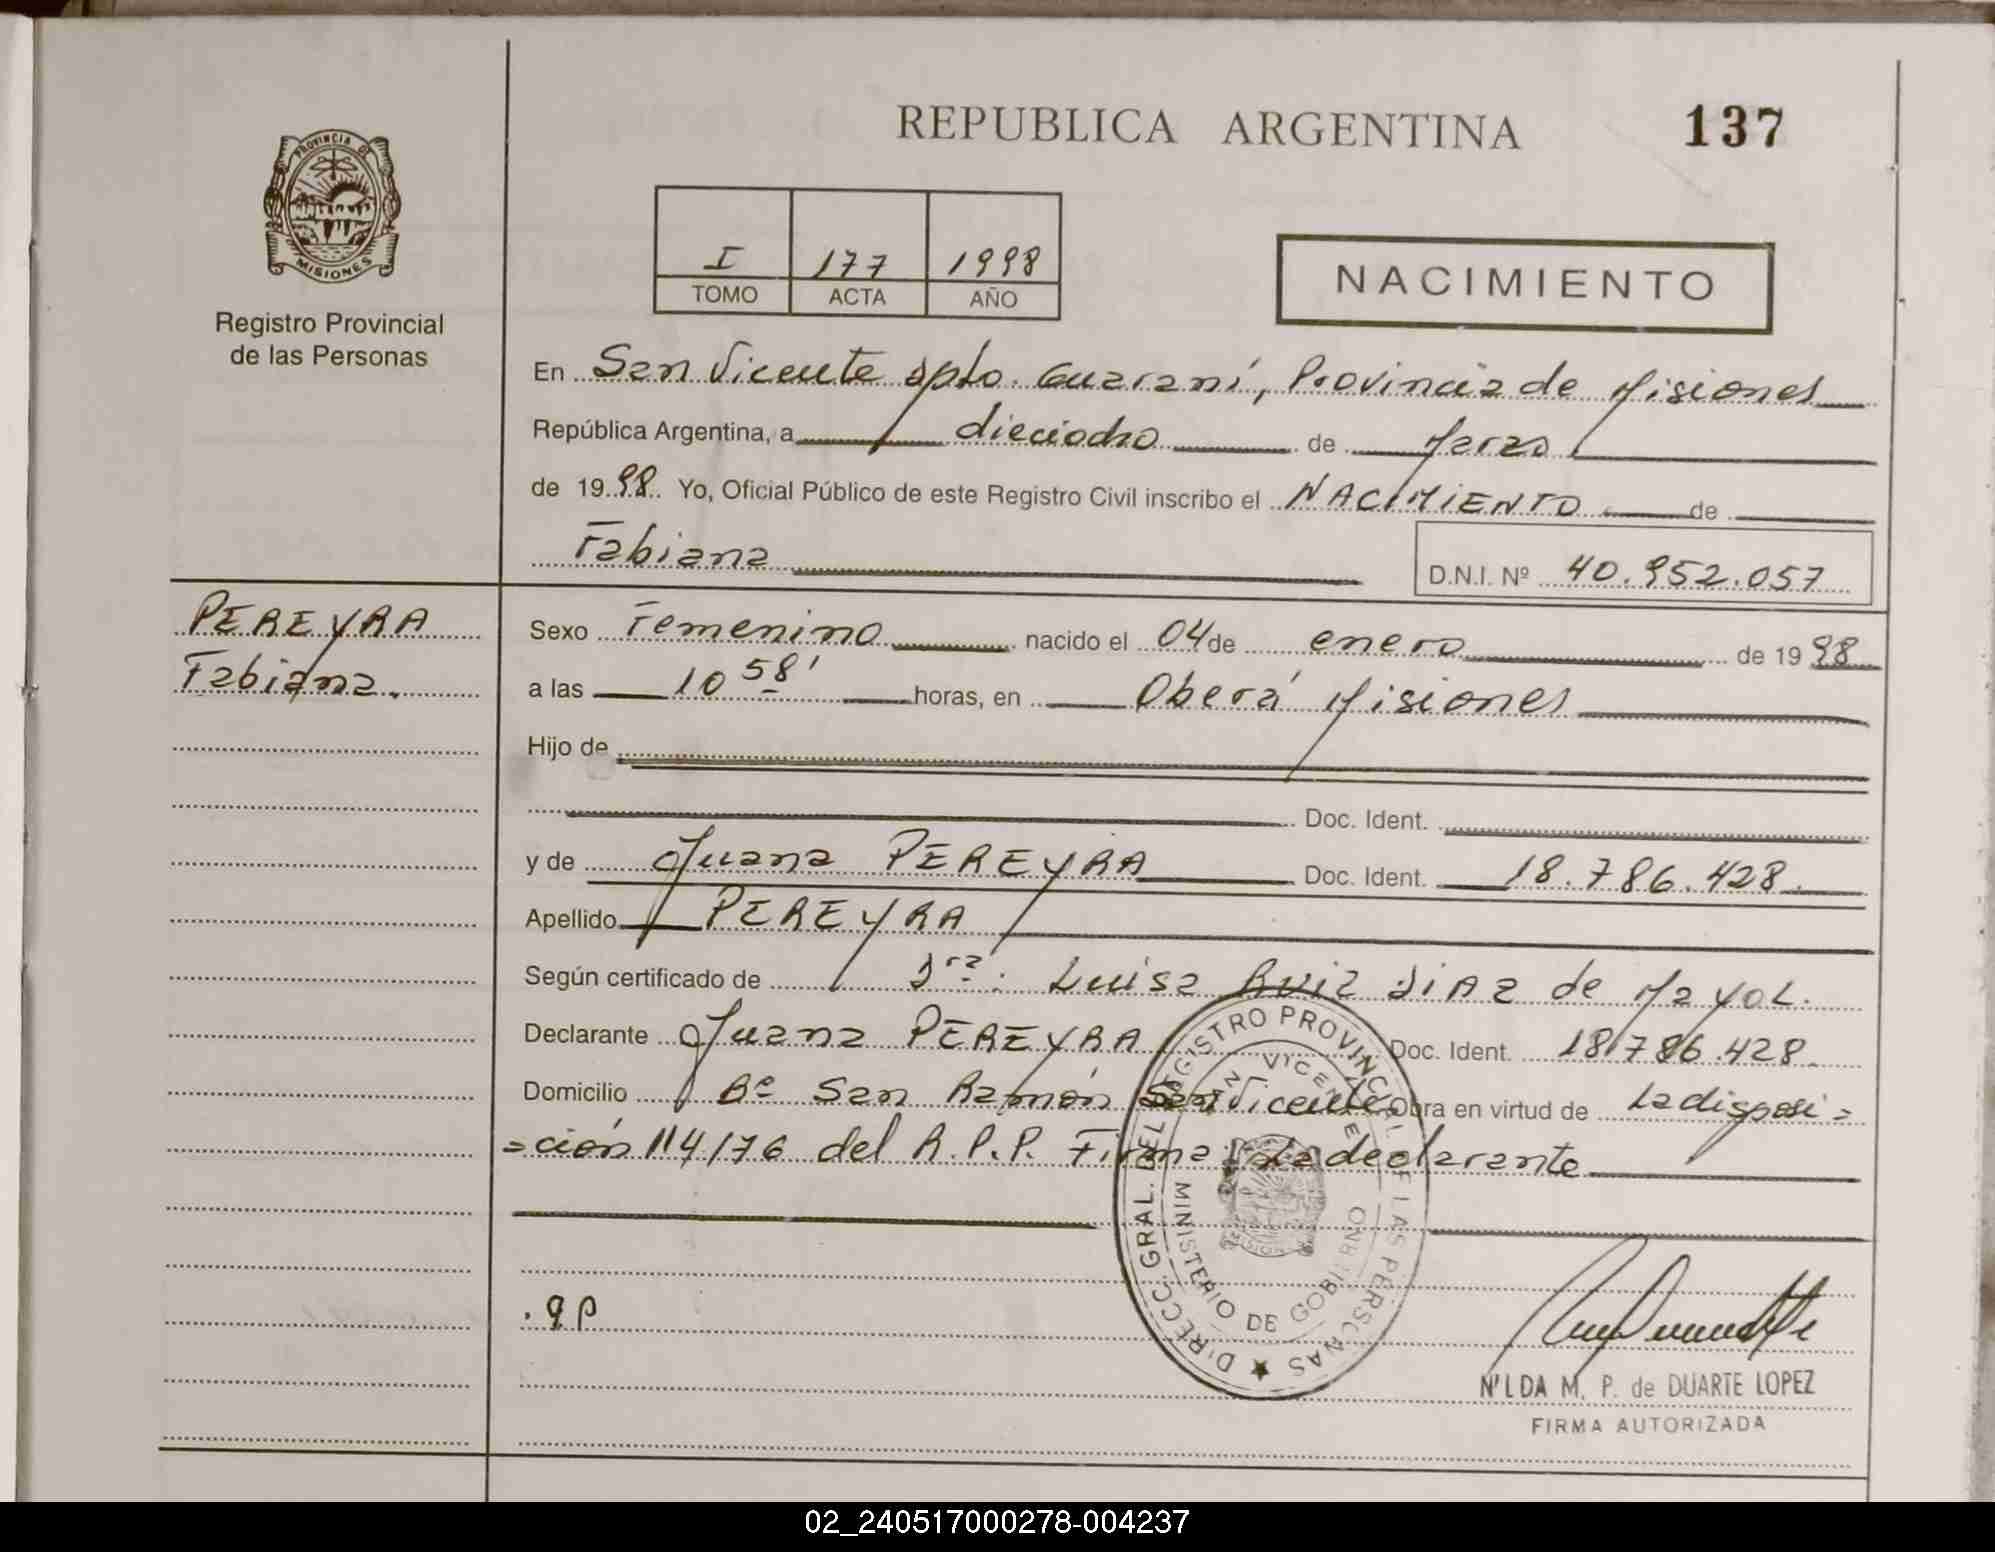 REPUBLICA ARGENTINA 137
PROVINCIA DE
MISIONES
Registro Provincial
de las Personas
I 177 1998
TOMO ACTA AÑO
NACIMIENTO
En San Vicente Dpto. Guaraní, Provincia de Misiones
República Argentina, a dieciocho de Marzo
de 1998 Yo, Oficial Público de este Registro Civil inscribo el NACIMIENTO de
Fabiana
D.N.I. Nº 40.952.057
PEREYRA
Fabiana.
Sexo Femenino nacido el 04 de enero de 1998
a las 10 58' horas, en Oberá Misiones
Hijo de
Doc. Ident.
y de Juana PEREYRA Doc. Ident. 18.786.428.
Apellido PEREYRA
Según certificado de Dra. Luisa Ruiz Diaz de Mayol.
Declarante Juana PEREYRA Doc. Ident. 18.786.428.
Domicilio Bº San Ramón San Vicente Obra en virtud de La disposi=
=ción 114/76 del R.P.P. Firma: La declarante
DIRECC. GRAL. DEL REGISTRO PROVINCIAL DE LAS PERSONAS
SAN VICENTE
MINISTERIO DE GOBIERNO
MISIONES
.qp
NILDA M. P. de DUARTE LOPEZ
FIRMA AUTORIZADA
02_240517000278-004237